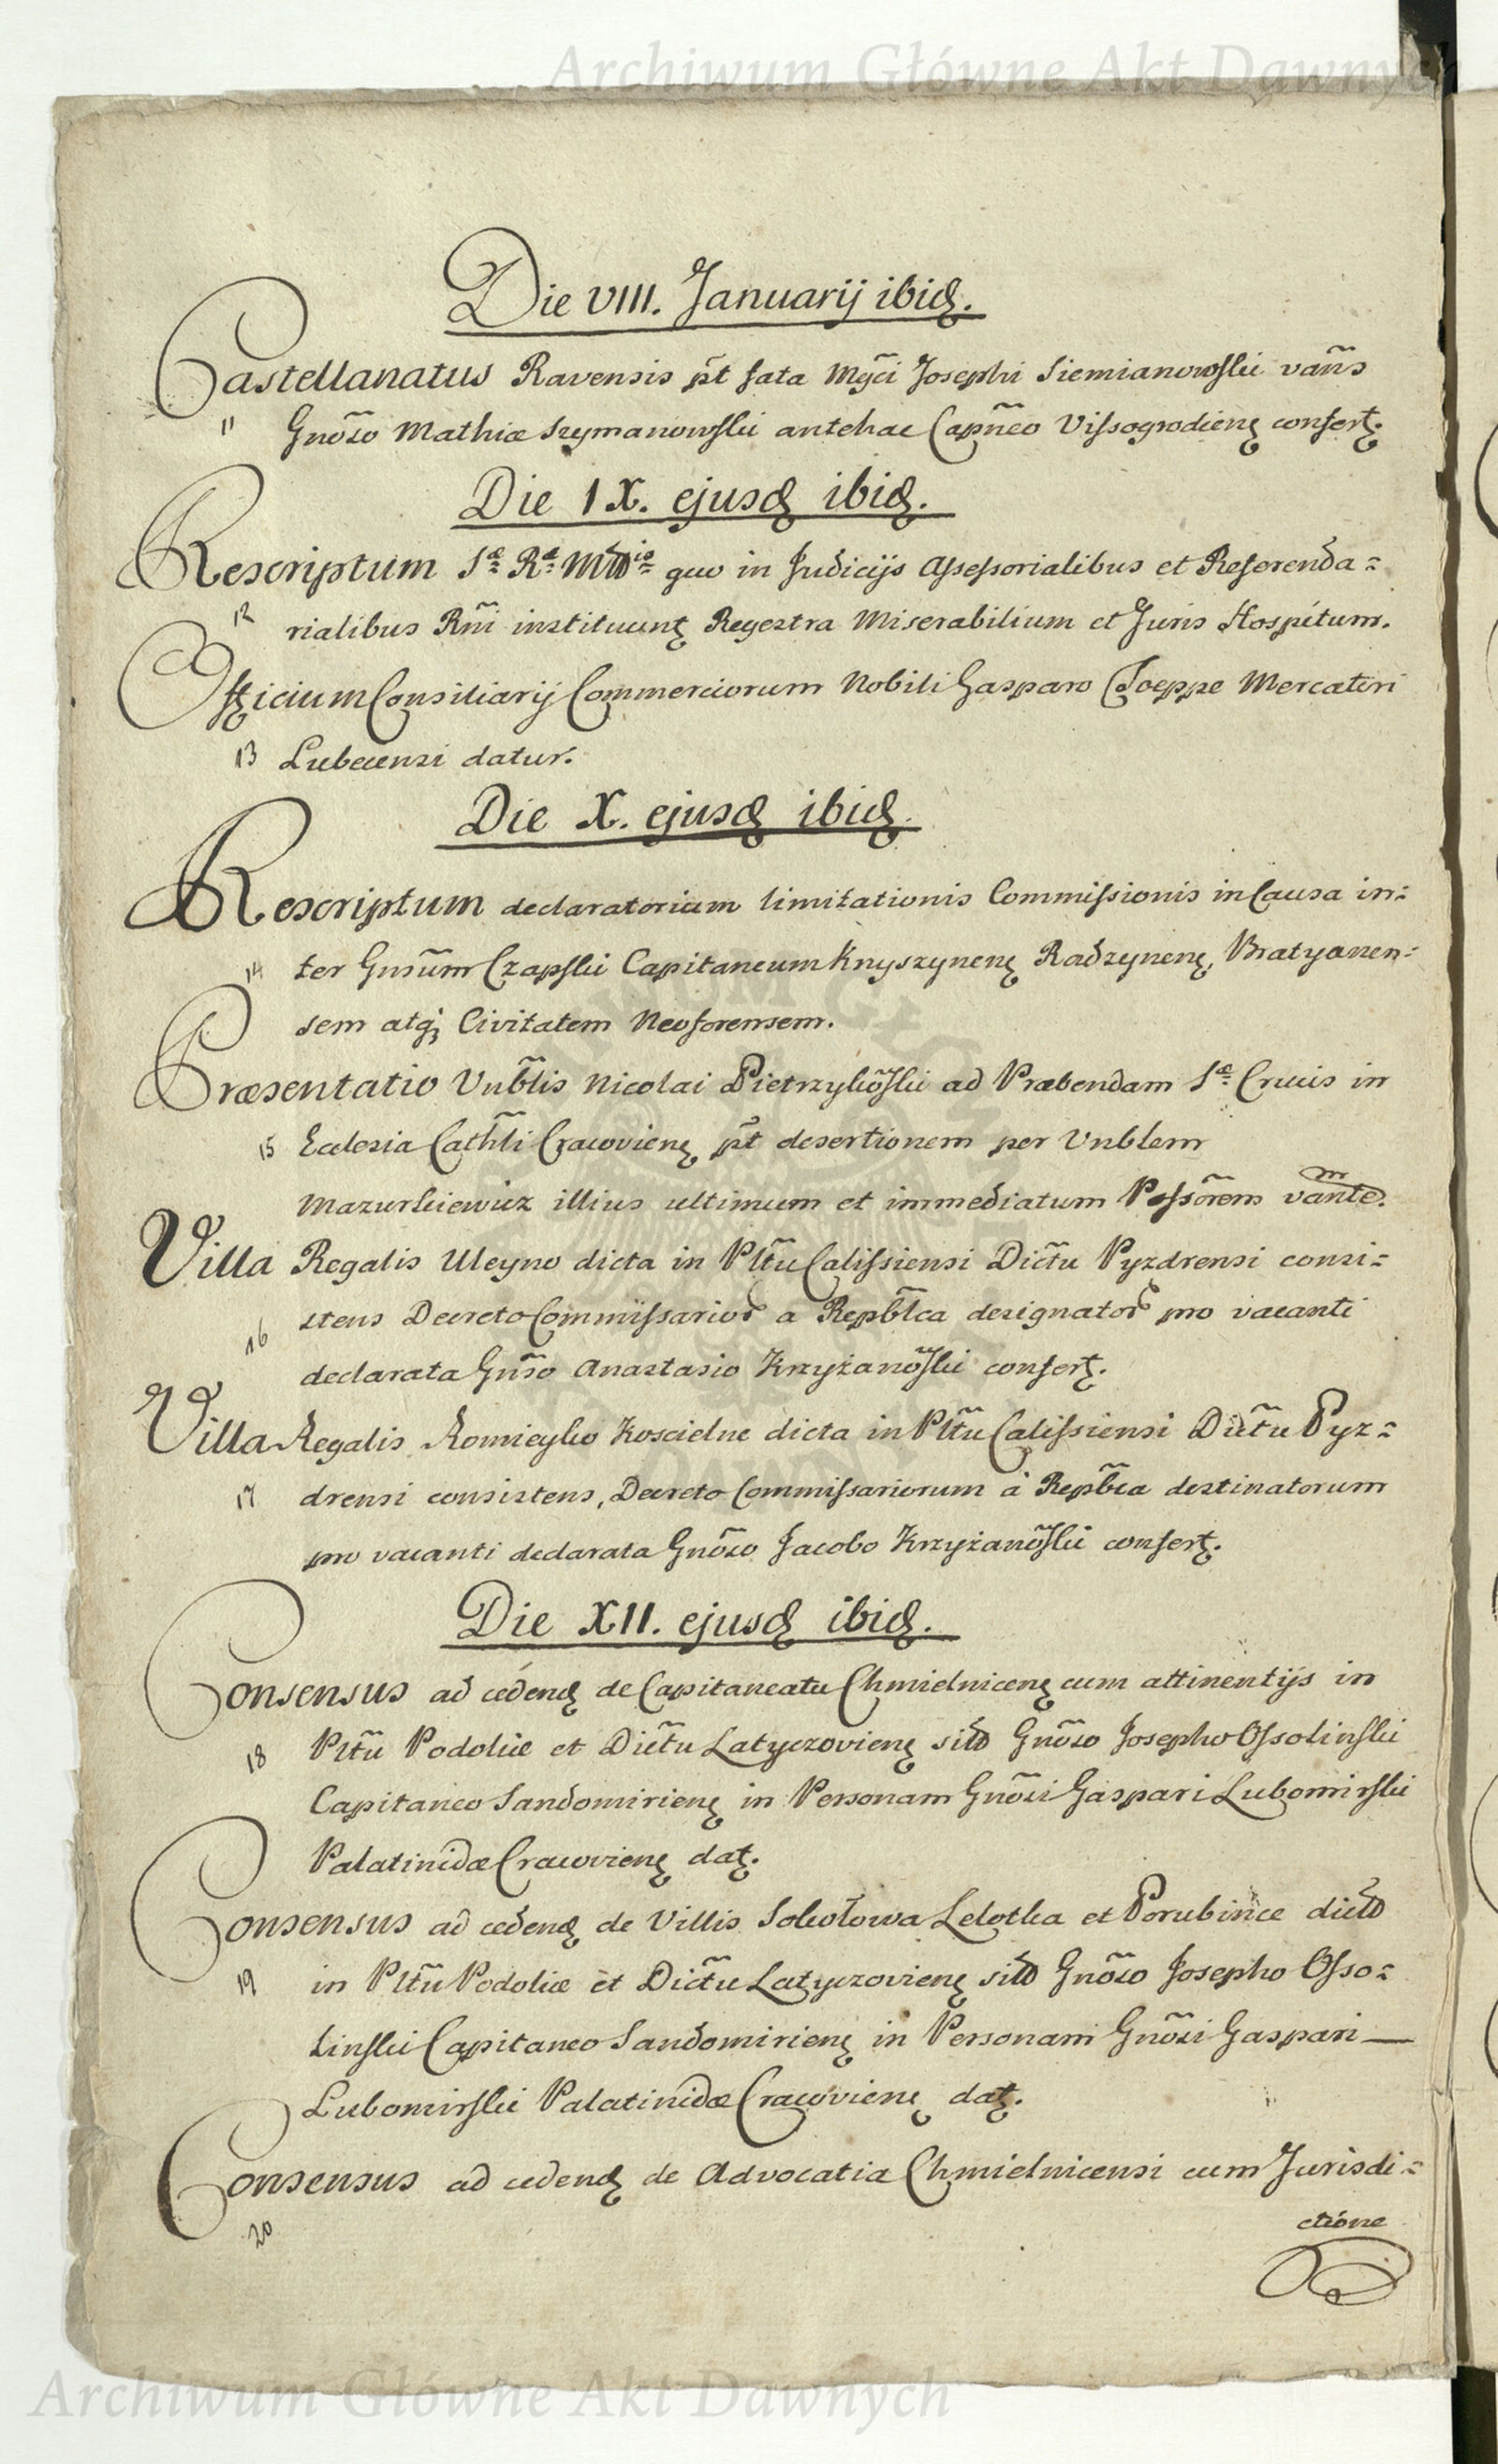 Archiwum Główne Akt Dawnych
Die VIII. Januarij ibid.
Castellanatus Ravensis p̃t fata Mgc̃i Josephi Siemianowski vañs
11 Gnõso Mathiæ Szymanowski antehac Capñeo Vissogrodien confert.
Die IX. ejusd ibid.
Rescriptum Sæ Ræ Mttis quo in Judicijs Assessorialibus et Referenda=
12 rialibus Rñi instituunt Regestra Miserabilium et Juris Hospitum.
Officium Consiliarij Commerciorum Nobili Gasparo Toeppe Mercatori
13 Lubecensi datur.
Die X. ejusd ibid.
Rescriptum declaratorium limitationis Commissionis in Causa in=
14 ter Gnsũm Czapski Capitaneum Knyszynen, Radzynen, Bratyanen=
sem atq; Civitatem Neoforensem.
Præsentatio Vnb̃lis Nicolai Pietrzykõski ad Præbendam Sæ Crucis in
15 Ecclesia Cath̃li Cracovien p̃t desertionem per Vnblem
Mazurkiewicz illius ultimum et immediatum Possõrem vañtem.
Villa Regalis Uleyno dicta in Pltũ Calissiensi Dictũ Pyzdrensi consi=
16 stens Decreto Commissarior a Repb̃lca designator pro vacanti
declarata Gnso Anastasio Krzyżanõski confert.
Villa Regalis Kościelne dicta in Pltũ Calissiensi Dictũ Pyz=
17 drensi consistens, Decreto Commissariorum à Repb̃ca destinatorum
pro vacanti declarata Gnõso Jacobo Krzyżanõski confert.
Die XII. ejusd ibid.
Consensus ad cedend de Capitaneatu Chmielnicen cum attinentijs in
18 Pltũ Podoliæ et Dictũ Latyczovien sito Gnõso Josepho Ossolinski
Capitaneo Sandomirien in Personam Gnõsi Gaspari Lubomirski
Palatinidæ Cracovien dat.
Consensus ad cedend de Villis Sokołowa Lelotka et Porubince dicto
19 in Pltũ Podoliæ et Dictũ Latyczovien sito Gnõso Josepho Osso=
linski Capitaneo Sandomirien in Personam Gnõsi Gaspari
Lubomirski Palatinidæ Cracovien dat.
Consensus ad cedend de Advocatia Chmielnicensi cum Jurisdi=
20
ctione
Archiwum Główne Akt Dawnych